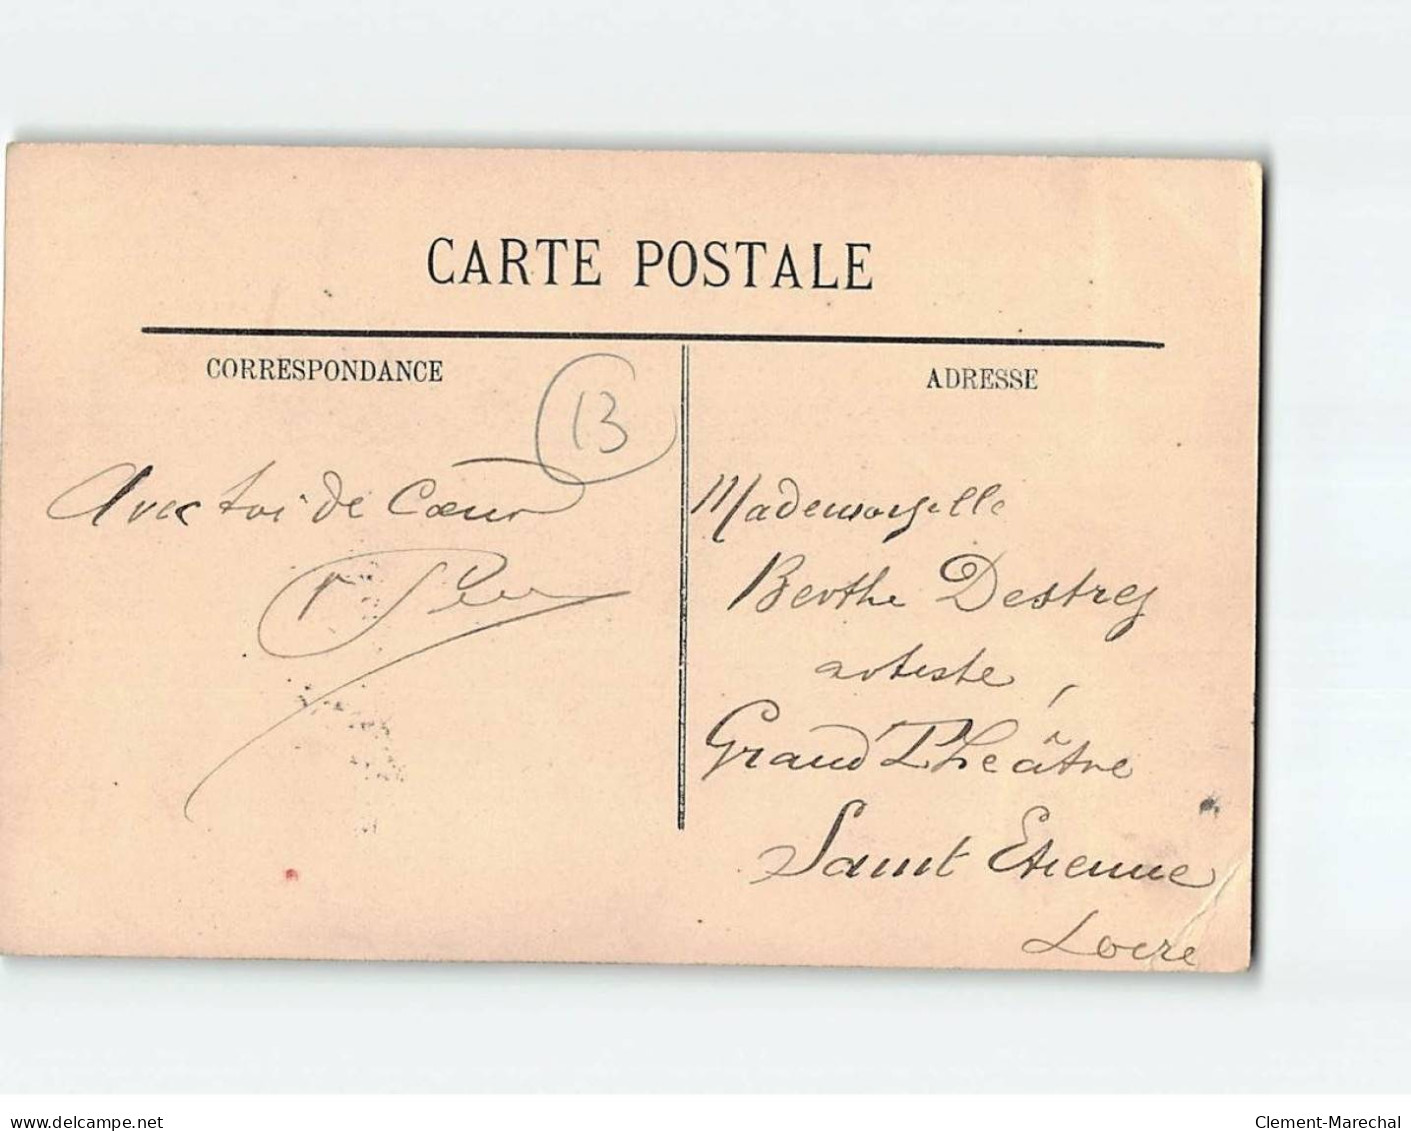 CARTE POSTALE
CORRESPONDANCE
13
Avec toi de Cœur
ADRESSE
Mademoiselle
Berthe Destrey
artiste,
Grand Théâtre
Saint Etienne
Loire
www.delcampe.net
Clement-Marechal